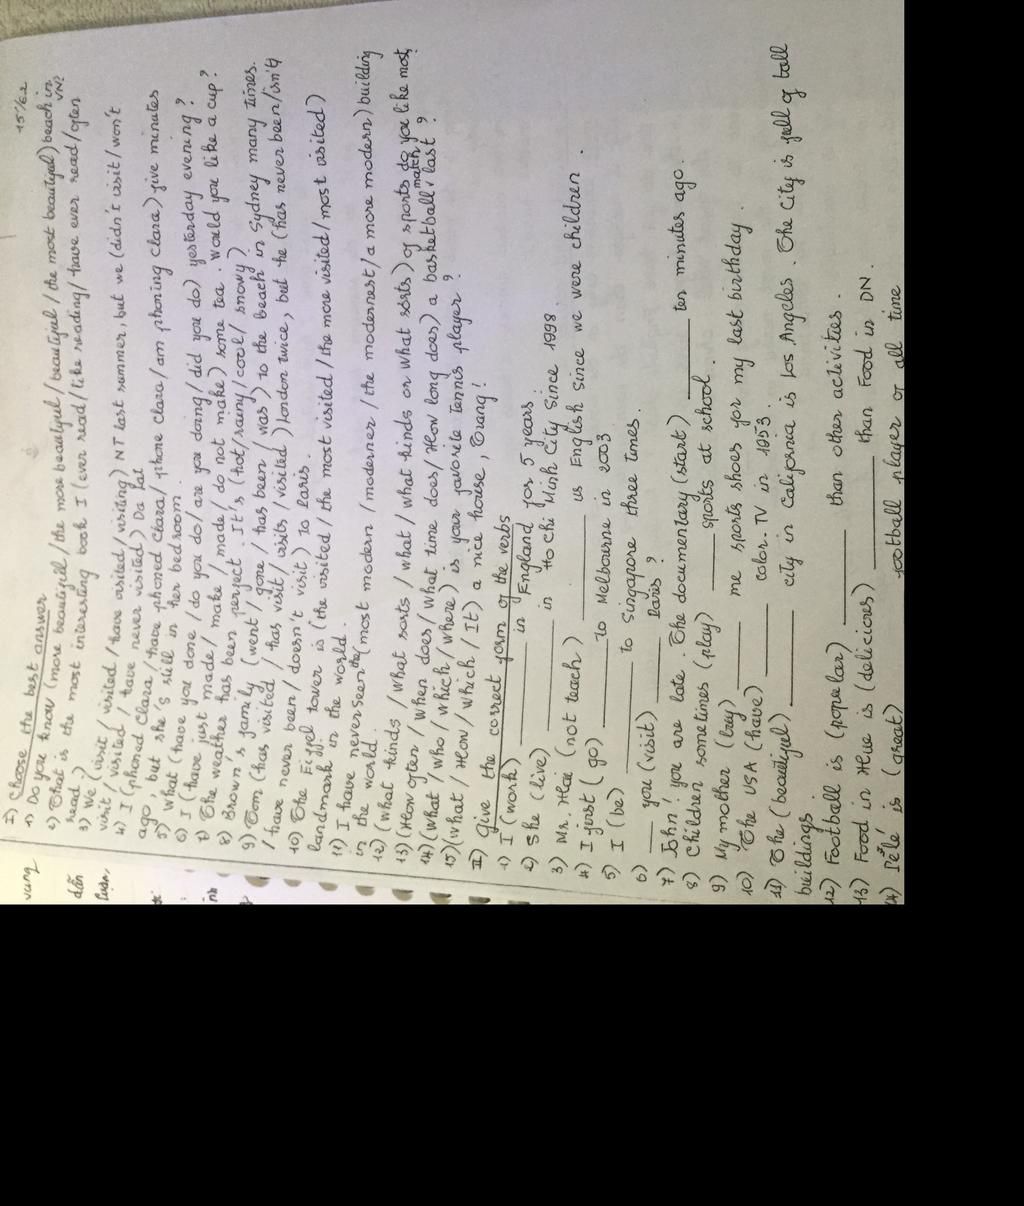 15/62
I) Choose the best answer
1) Do you know (more beautiful / the more beautiful / beautiful / the more beautiful / the most beautiful) beach in VN?
2) That is the most interesting book I (ever read / like reading / have ever read / often
read.)
3) We (visit / visited / have visited / visiting) NT last summer, but we (didn't visit / won't
visit / visited / have never visited) Da Lat
4) I (phoned Clara / have phoned Clara / phone Clara / am phoning Clara) five minutes
ago, but she's still in her bedroom.
5) What (have you done / do you do / are you doing / did you do) yesterday evening?
6) I (have just made / make / made / do not make) some tea. Would you like a cup?
7) The weather has been perfect. It's (hot / rainy / cool / snowy)
8) Brown's family (went / gone / has been / was) to the beach in Sydney many times.
9) Tom (has visited / has visit / visits / visited) London twice, but he (has never been / isn't
/ have never been / doesn't visit) to Paris.
10) The Eiffel tower is (the visited / the most visited / the more visited / most visited)
landmark in the world.
11) I have never seen the (most modern / moderner / the modernest / a more modern) building
in the world.
12) (What kinds / What sorts / what / what kinds or what sorts) of sports do you like most?
13) (How often / When does / What time does / How long does) a basketball match last?
14) (What / who / which / where) is your favorite tennis player?
15) (What / How / which / It) a nice house, Trang!
II) Give the correct form of the verbs
1) I (work) ______ in England for 5 years
2) She (live) ______ in Ho Chi Minh City since 1998.
3) Mr. Hai (not teach) ______ us English since we were children.
4) I first (go) ______ to Melbourne in 2003
5) I (be) ______ to Singapore three times.
6) ____ you (visit) ______ Paris?
7) John! you are late. The documentary (start) ______ ten minutes ago.
8) Children sometimes (play) ______ sports at school.
9) My mother (buy) ______ me sports shoes for my last birthday.
10) The USA (have) ______ color-TV in 1953.
11) The (beautiful) ______ city in California is Los Angeles. The City is full of tall
buildings
12) Football is (popular) ______ than other activities.
13) Food in Hue is (delicious) ______ than Food in DN.
14) Pélé is (great) ______ football player of all time
vang
dẫn
luận,